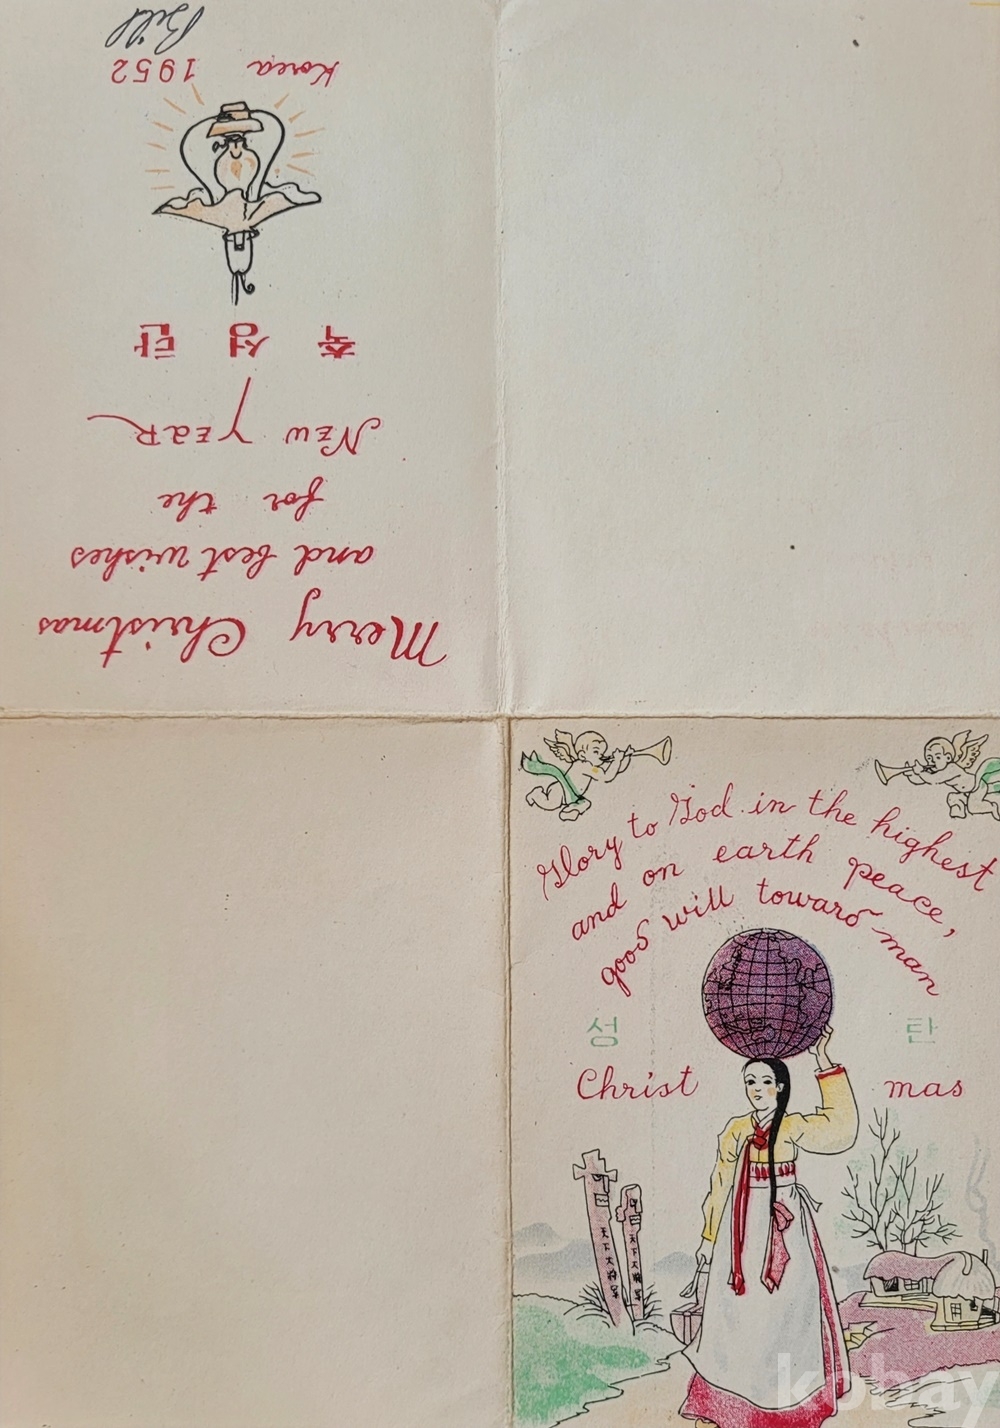 Glory to God in the highest
and on earth peace,
good will toward man
성 탄
Christ mas
天下大將軍
天下大將軍
Merry Christmas
and best wishes
for the
New Year
축 성 탄
Korea 1952
Bill
kobay